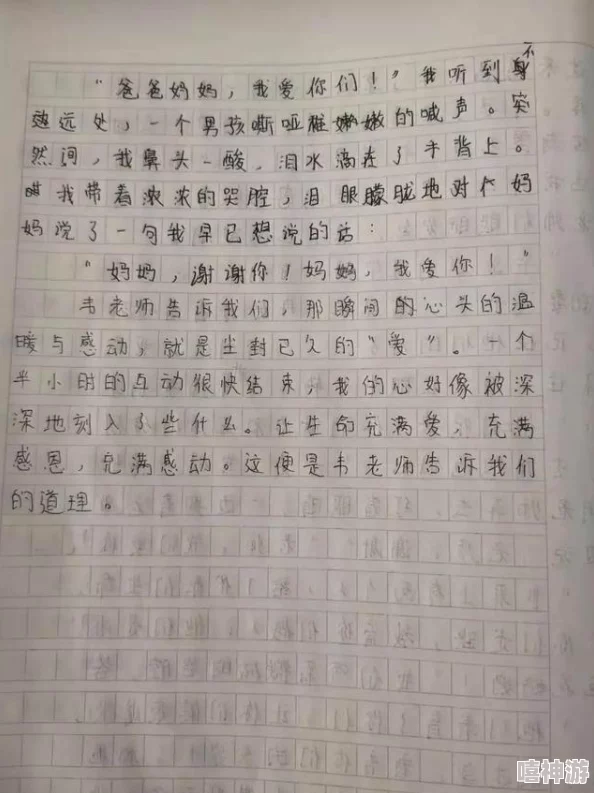 "爸爸妈妈,我爱你们!"我听到不
远处,一个男孩嘶哑稚嫩的喊声。突
然间,我鼻头一酸,泪水滴在了手背上。
我带着浓浓的哭腔,泪眼朦胧地对妈
妈说了一句我早已想说的话:
"妈妈,谢谢你!妈妈,我爱你!"
韦老师告诉我们,那瞬间的心头的温
暖与感动,就是尘封已久的"爱"。一个
半小时的互动很快结束,我的心好像被深
深地刻入了些什么。让生命充满爱,充满
感恩,充满感动。这便是韦老师告诉我们
的道理。
嘻神游